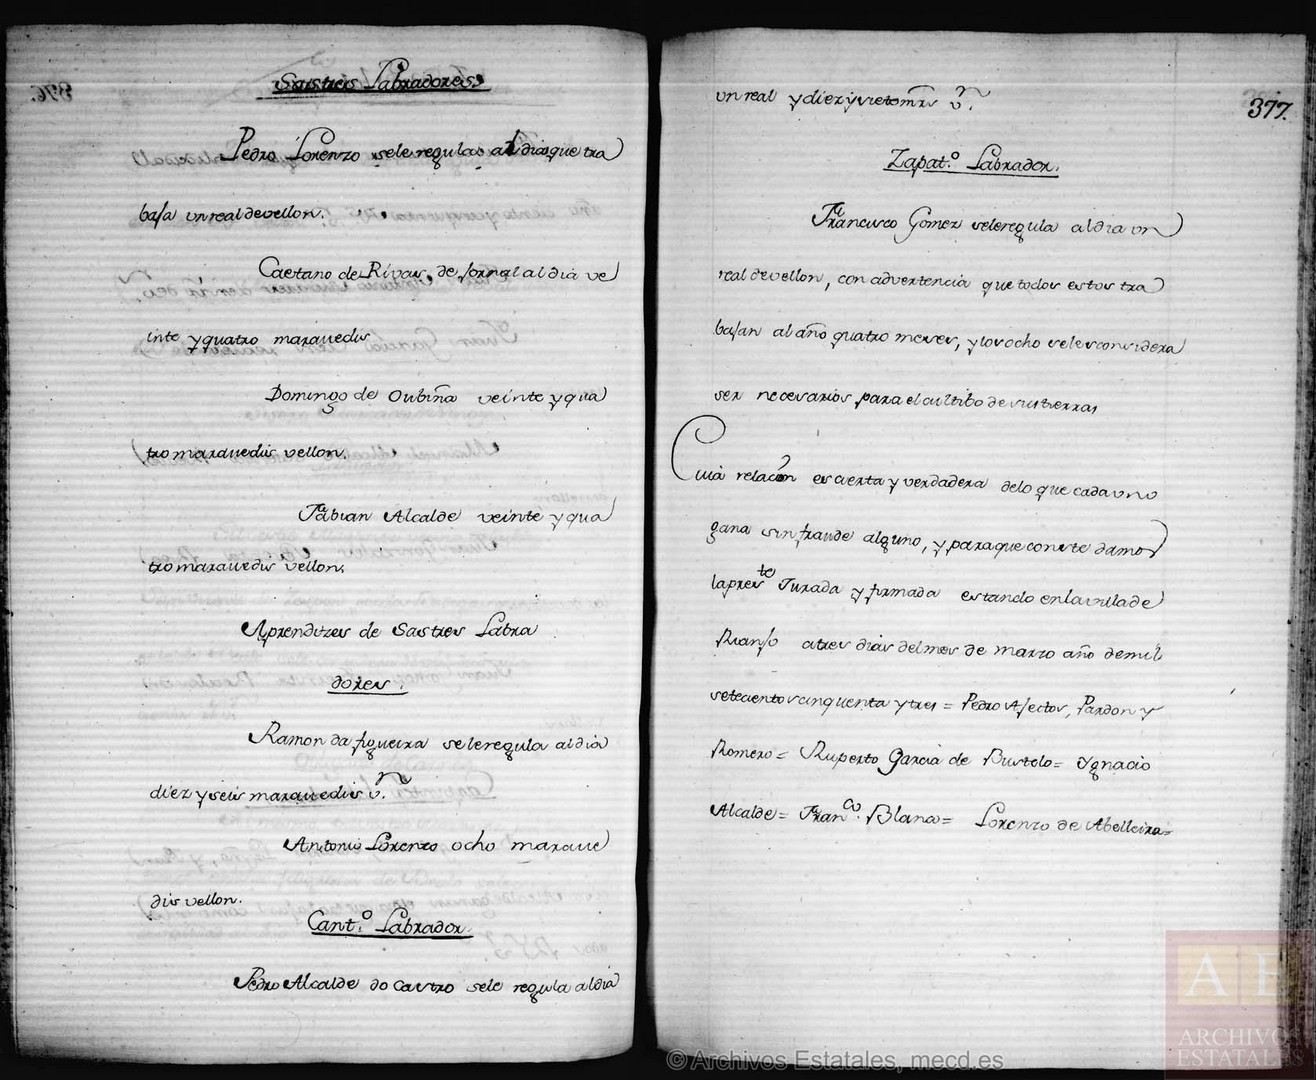 Sastres Labradores
Pedro Lorenzo sele regula al dia que tra
baja un real de vellon.
Caetano de Rivas de jornal al dia ve
inte y quatro maravedis
Domingo de Oubiña veinte y qua
tro maravedis vellon.
Fabian Alcalde veinte y qua
tro maravedis vellon.
Aprendizes de Sastres Labra
dores.
Ramon da figueira sele regula al dia
diez y seis maravedis v.n
Antonio Lorenzo ocho marave
dis vellon.
Cant.o Labrador.
Pedro Alcalde do Castro sele regula al dia
377.
un real y diez y siete mrs v.n
Zapat.o Labrador.
Francisco Gomez sele regula al dia un
real de vellon, con advertencia que todos estos tra
bajan al año quatro meses, y los ocho seles considera
ser necesarios para el cultibo de sus tierras
Cuia relacion es cierta y verdadera de lo que cada uno
gana sin fraude alguno, y para que conste damos
la pres.te Jurada y firmada estando en la villa de
Rianjo a tres dias del mes de marzo año de mil
setecientos cinquenta y tres = Pedro Afectos, Pardon y
Romero = Ruperto Garcia de Bustelo = Ygnacio
Alcalde = Fran.co Blanco = Lorenzo de Abelleira =
AE
ARCHIVOS
ESTATALES
© Archivos Estatales, mecd.es